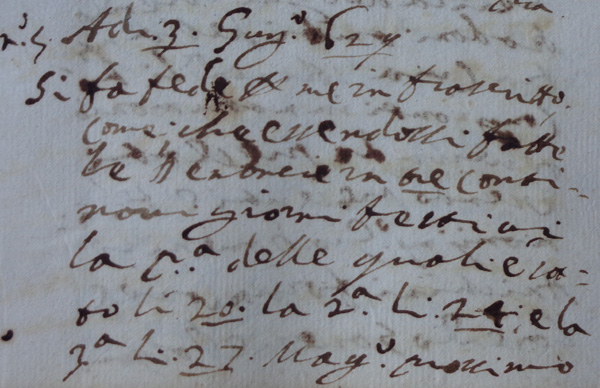 Adi. 3. Giug.º 1627.
Si fa fede per me infrascritto,
come che essendosi fatte
le denoncie in tre conti-
novi giorni festivi
la p.ª delle quali è sta-
to li 20. la 2.ª li. 24. e la
3.ª li. 27. Mag.º prossimo